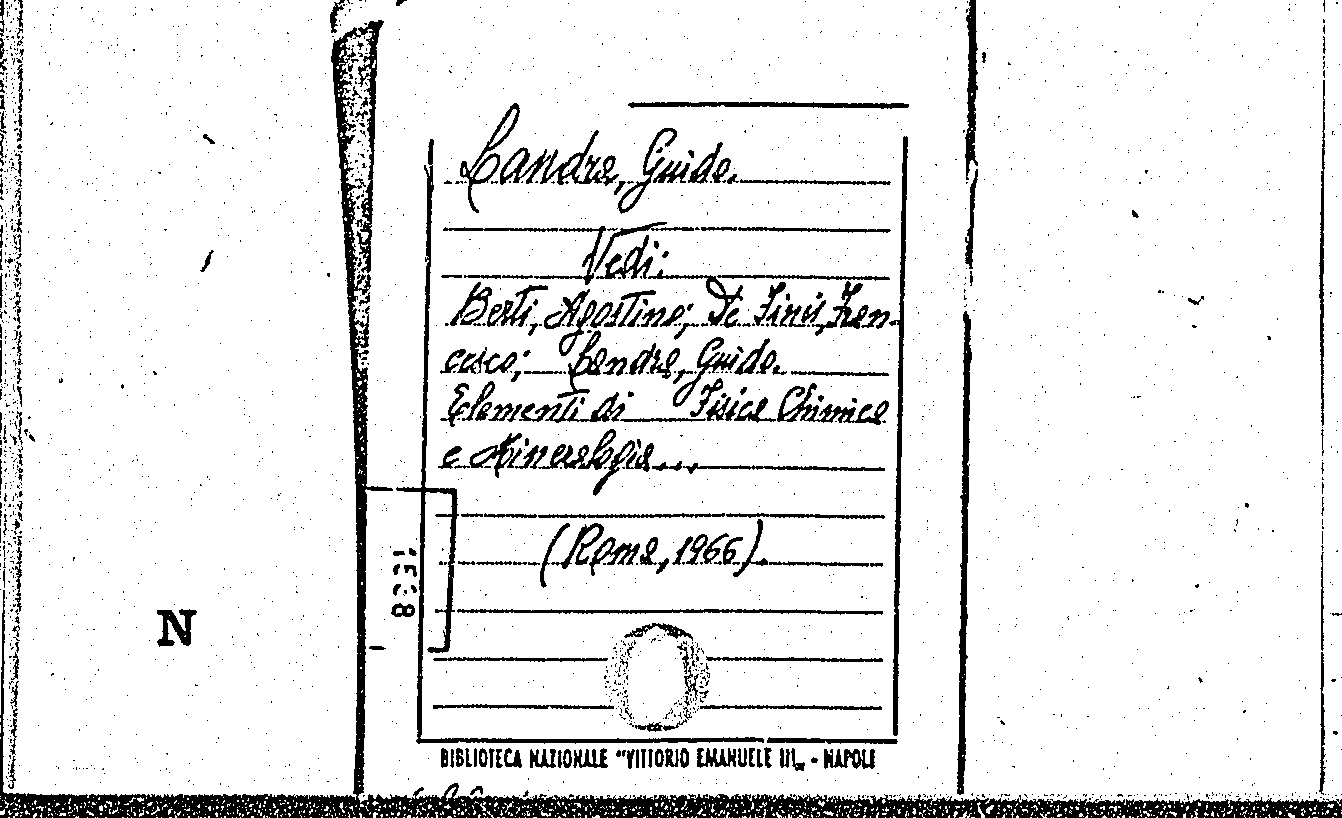 Landra, Guido.
Vedi:
Berti, Agostino; De Finis, Fran-
cesco; Landra, Guido.
Elementi di Fisica Chimica
e Mineralogia...
(Roma, 1966).
N
BIBLIOTECA NAZIONALE "VITTORIO EMANUELE III„ - NAPOLI